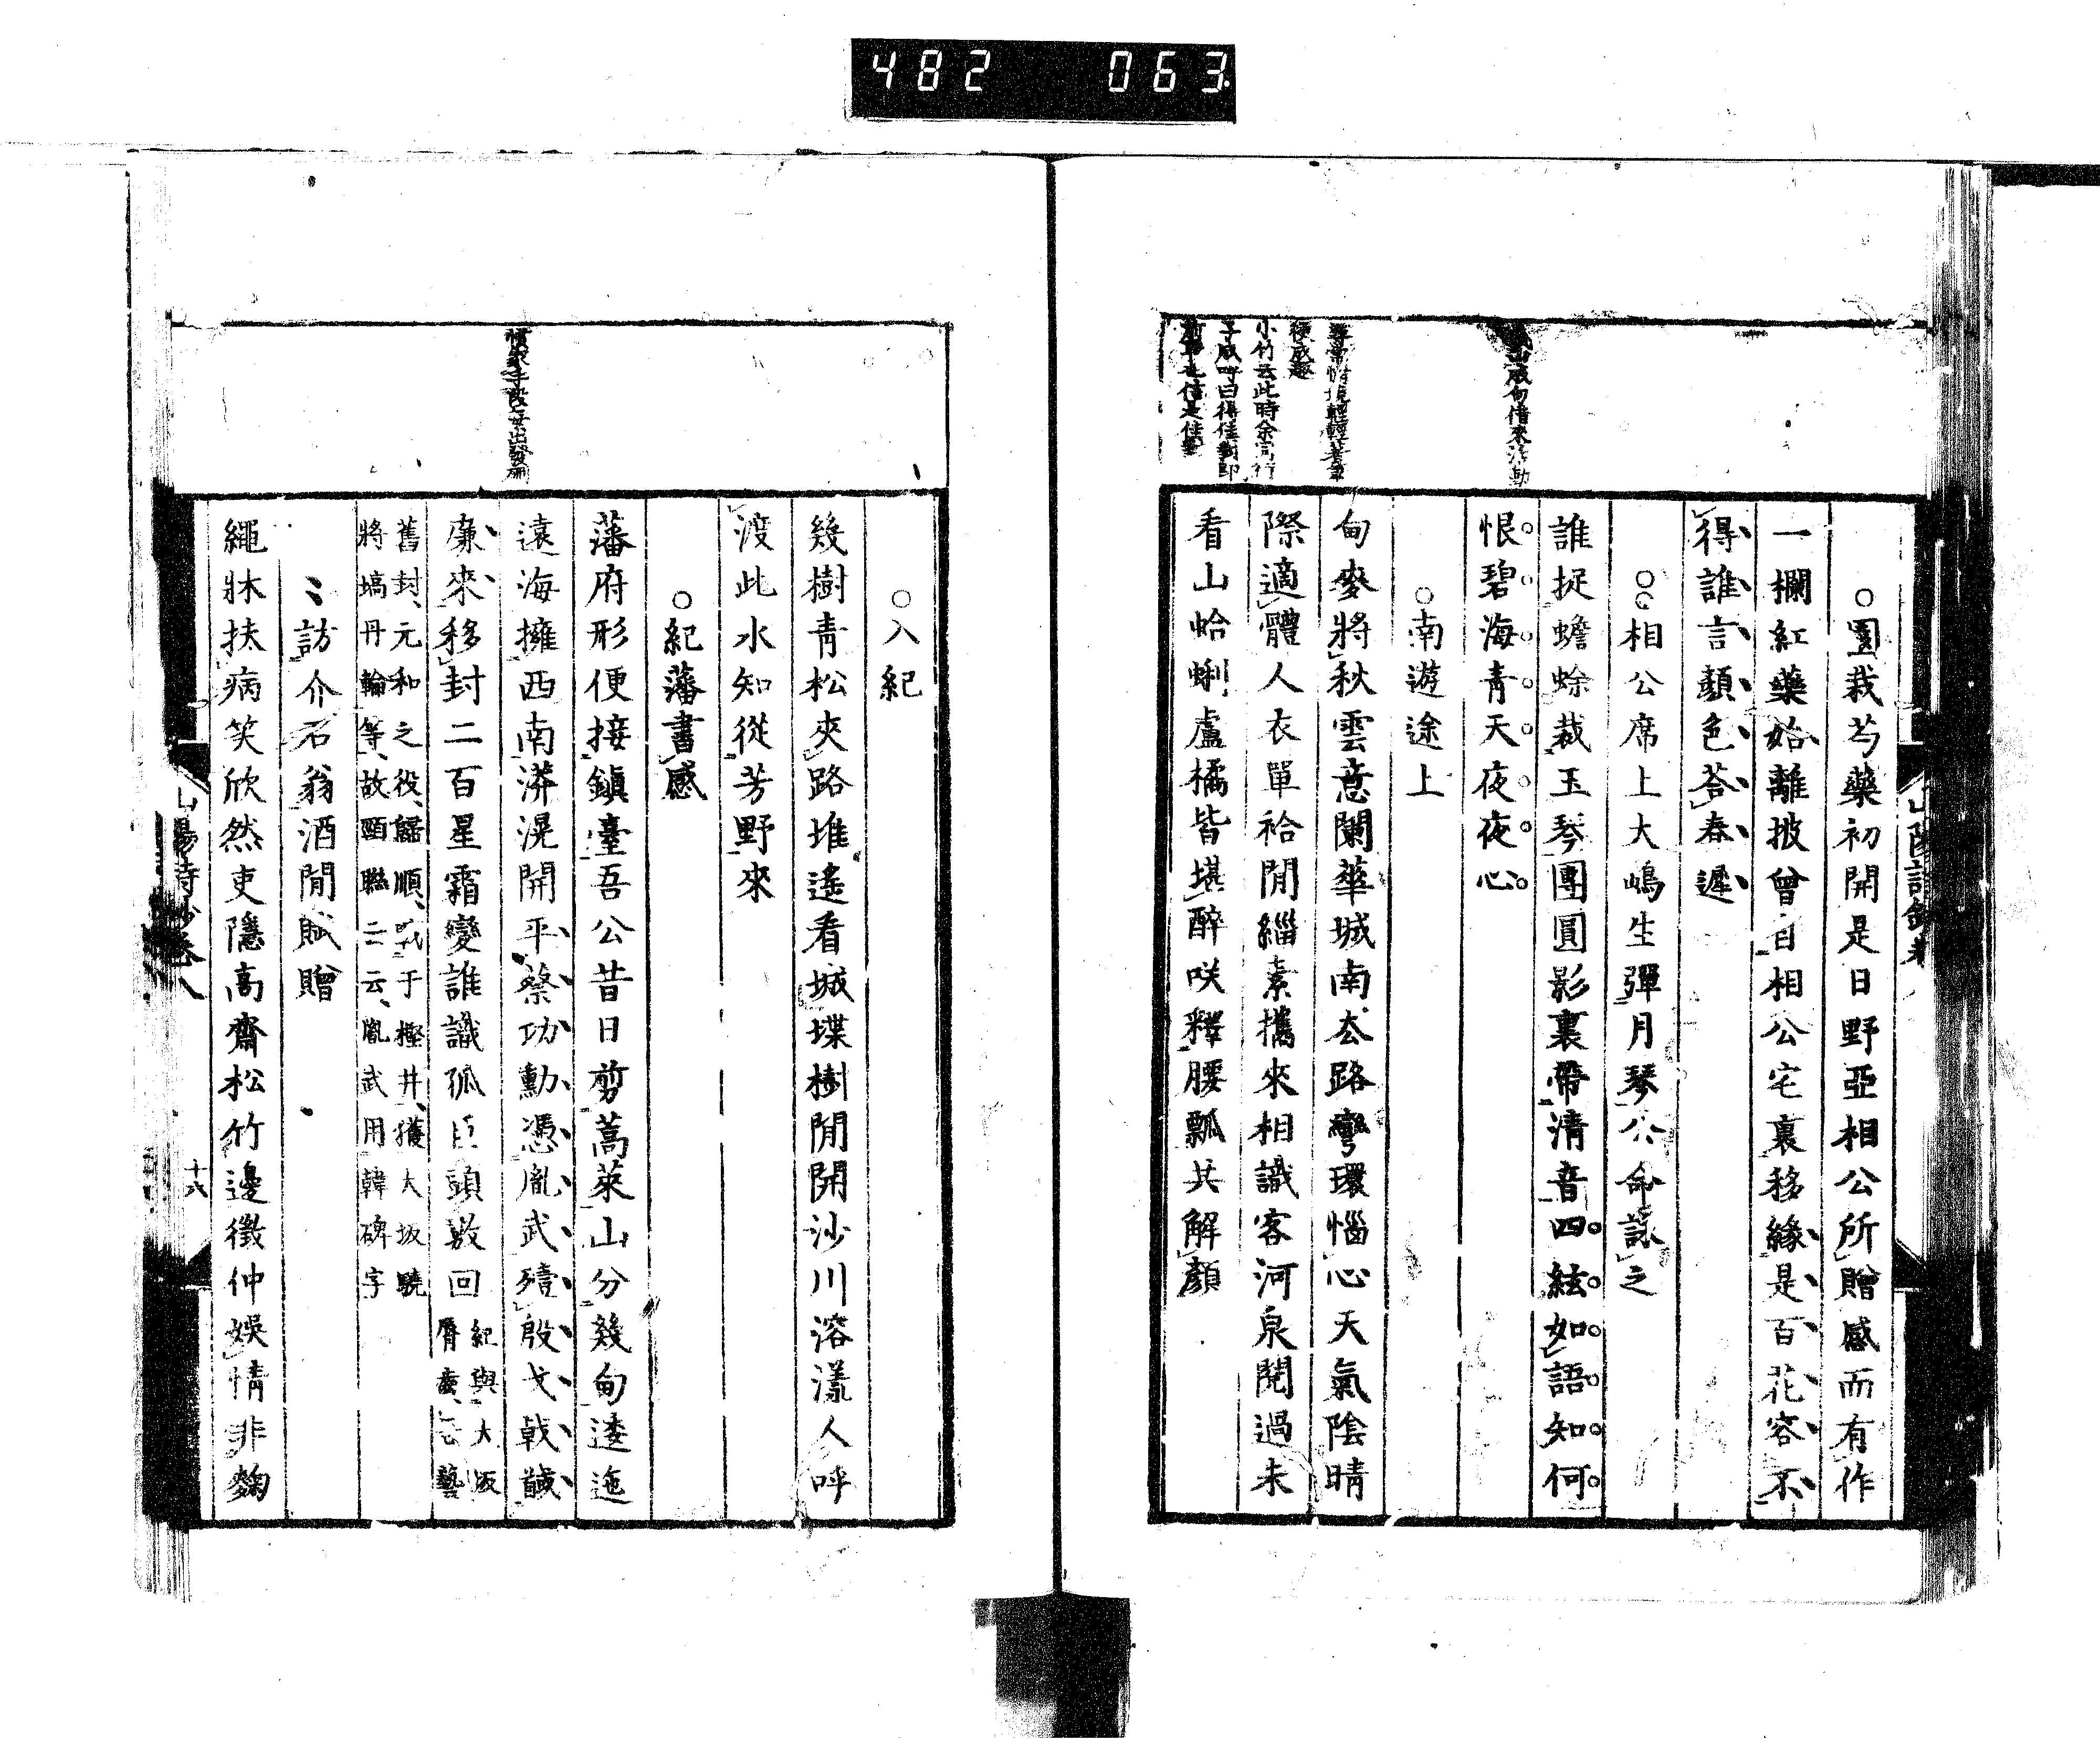 482 063
○園栽芍藥初開是日野亞相公所贈感而有作
一欄紅藥始離披曾自相公宅裏移緣是百花容不
得誰言顏色荅春遲
○相公席上大嶋生彈月琴公命詠之
誰捉蟾蜍裁玉琴團圓影裏帶清音四絃如語知何
恨碧海青天夜夜心
○南遊途上
甸麥將秋雲意闌華城南去路彎環惱心天氣陰晴
際適體人衣單袷閒緇素攜來相識客河泉閱過未
看山蛤蜊盧橘皆堪醉咲釋腰瓢共解顏
小竹云此時余同行
子成呼曰得佳對即
○入紀
幾樹青松夾路堆遙看城堞樹閒開沙川溶漾人呼
渡此水知從芳野來
○紀藩書感
藩府形便接鎭臺吾公昔日剪蒿萊山分幾甸逶迤
遠海擁西南漭滉開平蔡功勳憑胤武殪殷戈戟馘
廉來移封二百星霜變誰識孤臣頭重回
紀與大坂
舊封元和之役歸順于樫井獲大坂驍
將塙丹輪等故頸聯二云胤武用韓碑字
訪介石翁酒閒賦贈
繩牀扶病笑欣然吏隱高齋松竹邊徵仲娛情非麴
山陽詩鈔卷八
十六